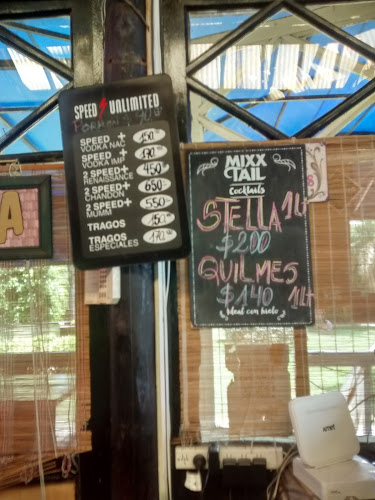 SPEED UNLIMITED
SPEED +
VODKA NAC
150
SPEED +
VODKA IMP
170
2 SPEED +
RENAISSANCE
450
2 SPEED +
CHANDON
650
2 SPEED +
MUMM
550
TRAGOS
150
TRAGOS
ESPECIALES
170
MIXX
TAIL
Cocktails
STELLA 1Lt
$200
QUILMES
$140 1Lt
Ideal con hielo
A
arnet